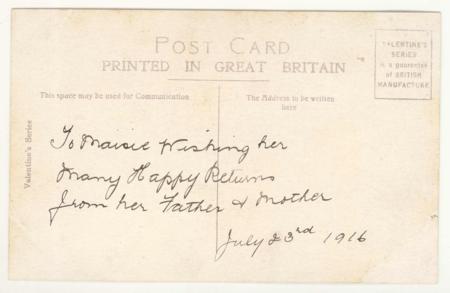 POST CARD
PRINTED IN GREAT BRITAIN
VALENTINE'S
SERIES
is a guarantee
of BRITISH
MANUFACTURE
This space may be used for Communication
The Address to be written
here
Valentine's Series
To Maisie Wishing her
Many Happy Returns
from her Father & Mother
July 23rd 1916